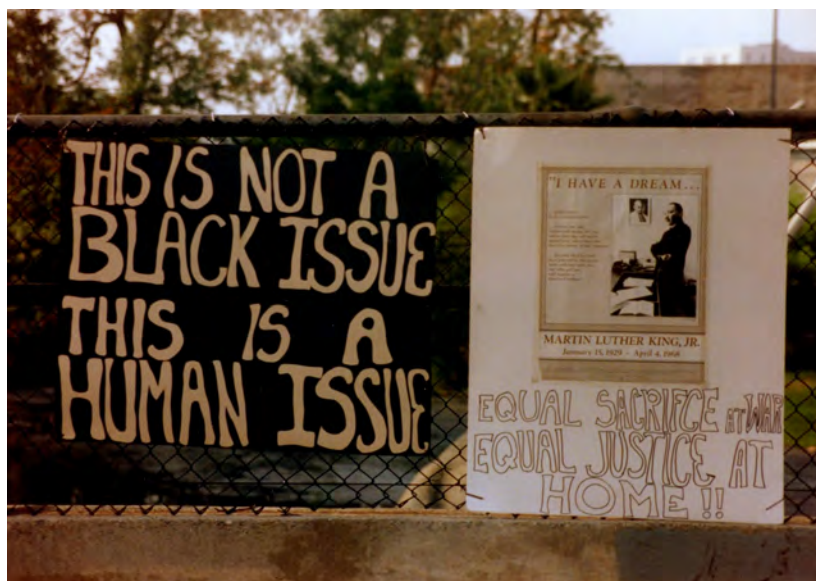 THIS IS NOT A
BLACK ISSUE
THIS IS A
HUMAN ISSUE
"I HAVE A DREAM...
MARTIN LUTHER KING, JR.
January 15, 1929 - April 4, 1968
EQUAL SACRIFCE AT WAR
EQUAL JUSTICE AT
HOME!!